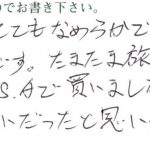 のでお書き下さい。
とてもなめらかで
です。たまたま旅
S.Aで買いまし
いだったと思い